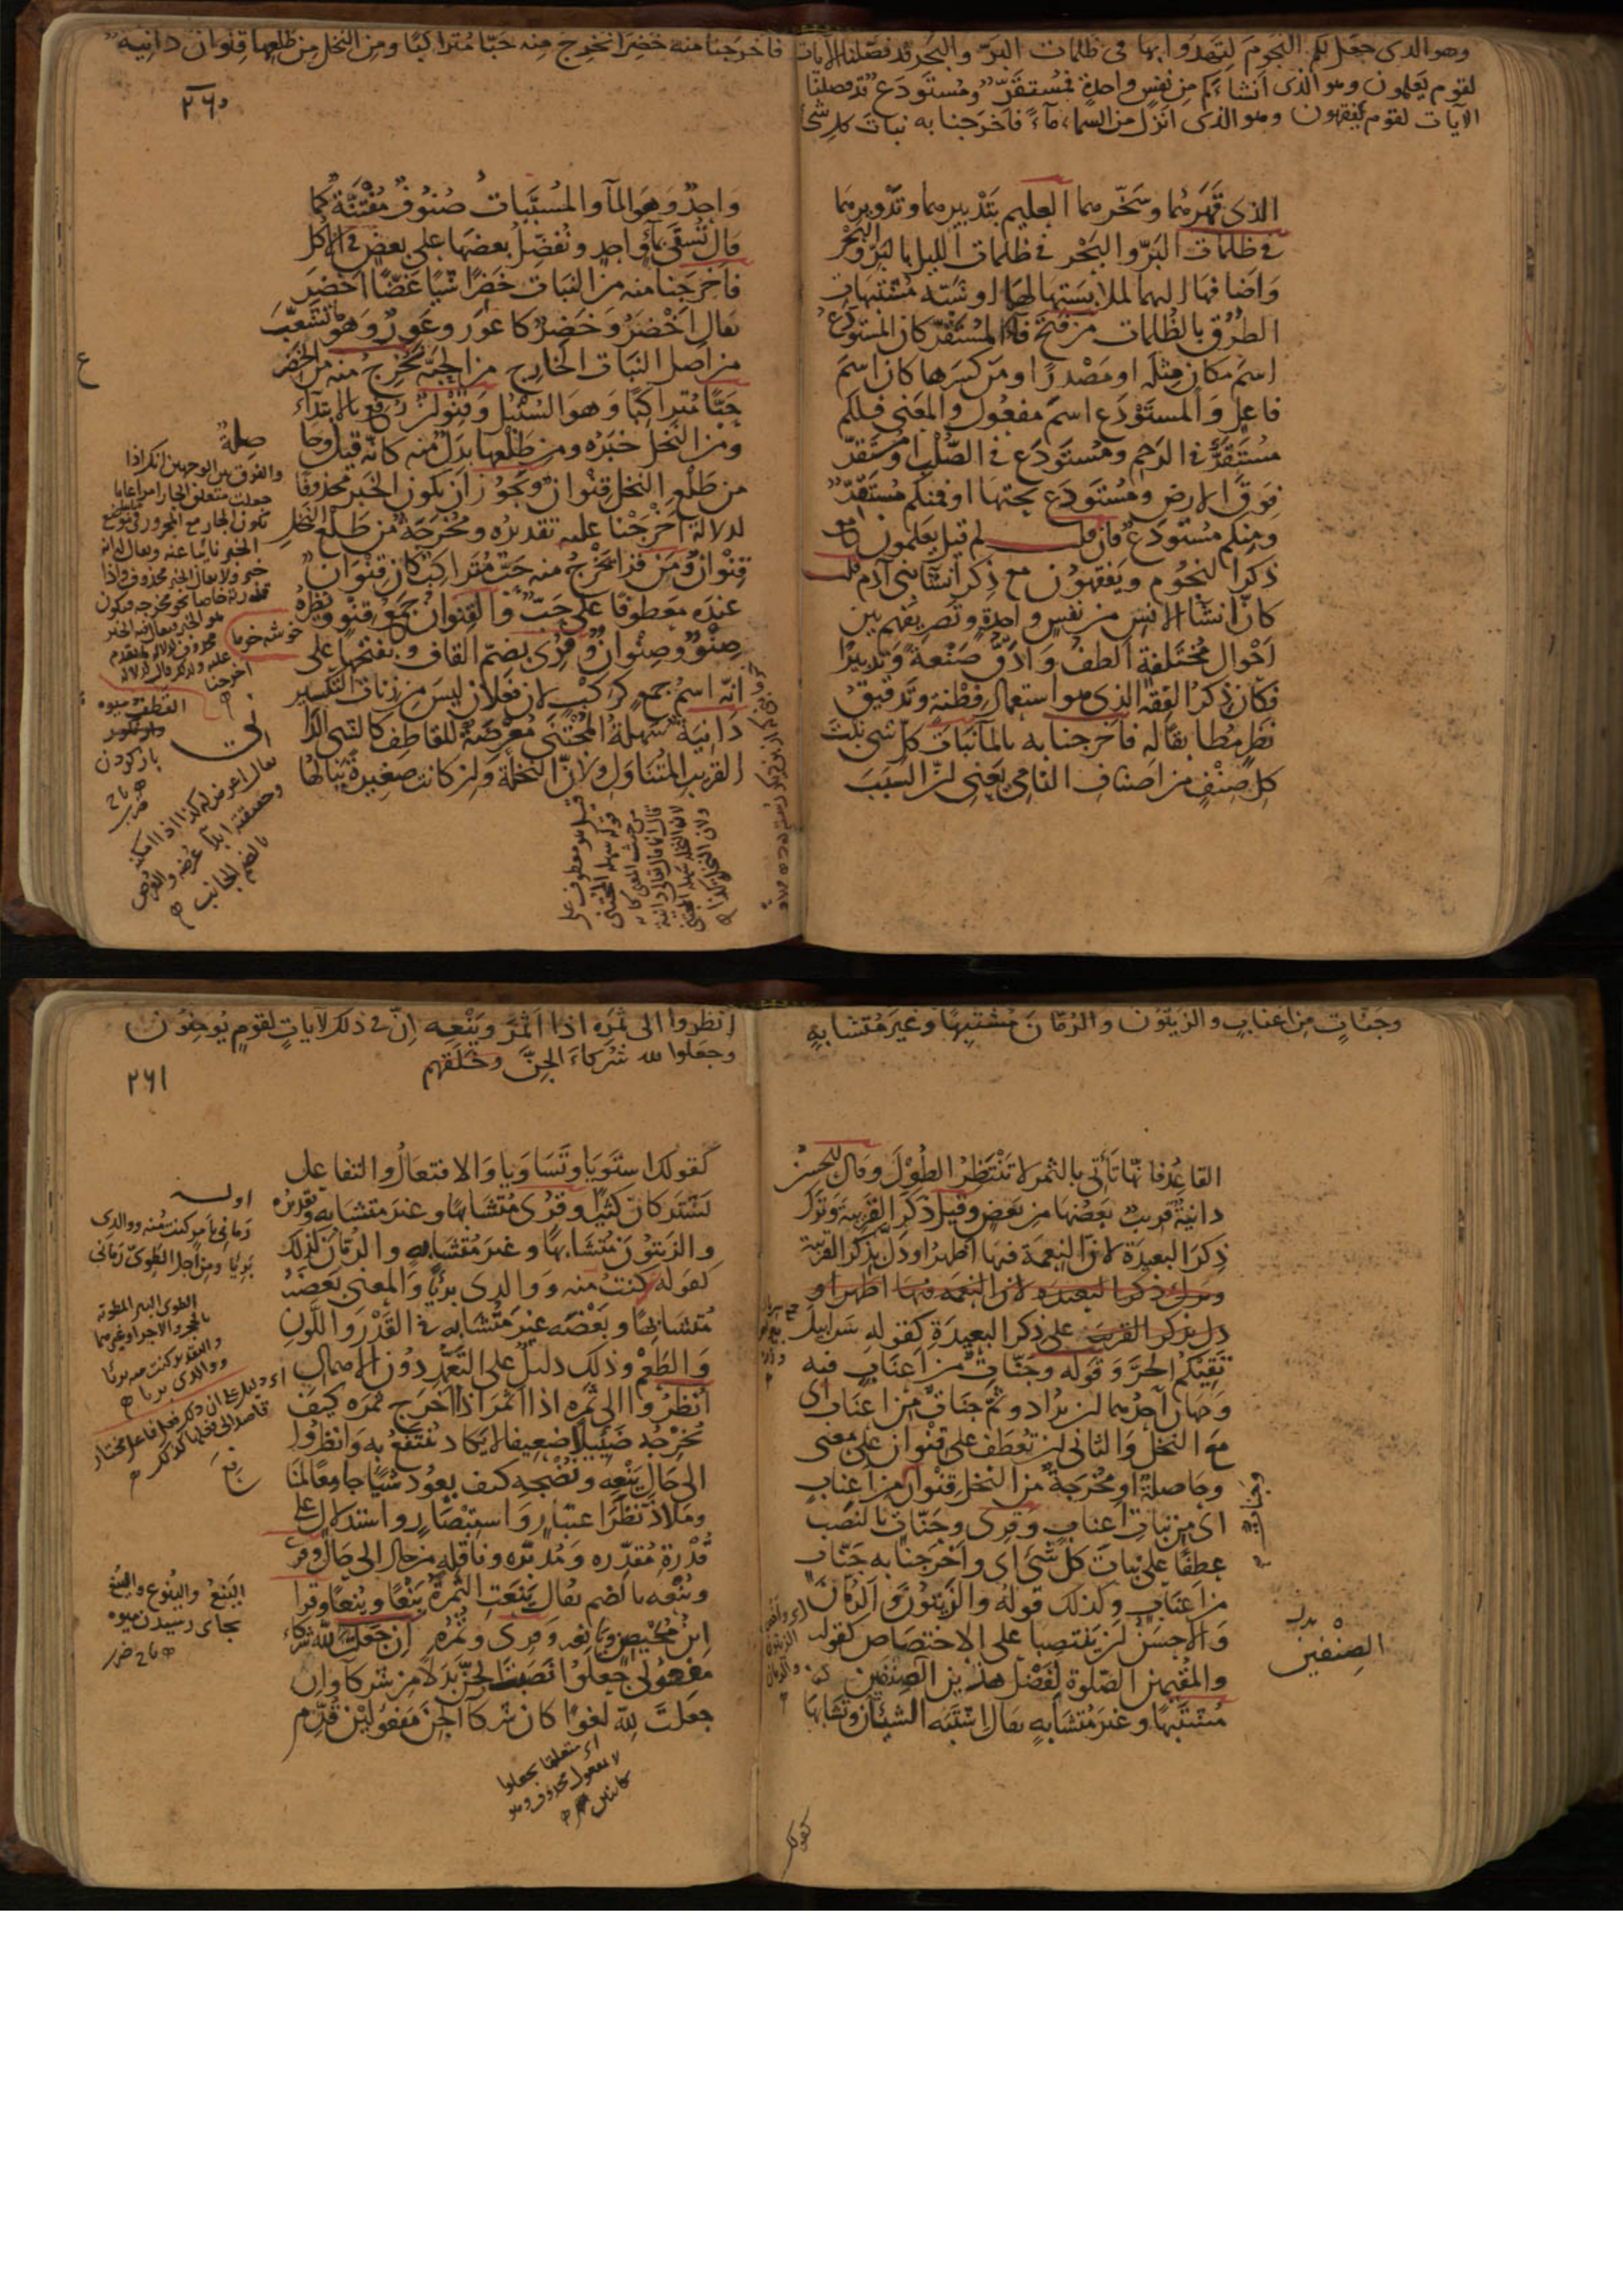 وهو الذى جعل لكم النجوم لتهتدوا بها فى ظلمات البرّ والبحر قد فصّلنا الآيات
لقوم يعلمون وهو الذى أنشاءكم من نفس واحدة فمستقرّ ومستودع قد فصلنا
الآيات لقوم يفقهون وهو الذى انزل من السماء ماءً فاخرجنا به نبات كل شئ
الذى قهرهما وسخّرهما العليم بتدبيرهما وتدويرهما
فى ظلمات البرّ والبحر فى ظلمات الليل بالبرّ والبحر
واضافها اليهما لملابستها لهما او شبّه مشتبهات
الطرق بالظلمات من فتح قاف المستقرّ كان المستودع
اسم مكان مثله او مصدرًا ومن كسرها كان اسم
فاعل والمستودع اسم مفعول والمعنى فلكم
مستقرّ فى الرحم ومستودع فى الصلب او مستقرّ
فوق الارض ومستودع تحتها او فمنكم مستقرّ
ومنكم مستودع فان قلت لم قيل يعلمون مع
ذكر النجوم ويفقهون مع ذكر انشا بنى آدم قلت
كان انشا الانس من نفس واحدة وتصريفهم بين
احوال مختلفة الطف وادقّ صنعة وتدبيرًا
فكان ذكر الفقه الذى هو استعمال فطنة وتدقيق
نظر مطابقًا له فاخرجنا به بالما نبات كل شى نبت
كل صنف من اصناف النامى يعنى ان السبب
فاخرجنا منه خضرا نخرج منه حبّا متراكبًا ومن النخل من طلعها قنوان دانية
٢٦٠
واحد وهو الما والمسبّبات صنوف مفتنّة كما
قال تسقى بماء واحد ونفضّل بعضها على بعض فى الاكل
فاخرجنا منه من النبات خضرًا شيًا غضًّا اخضر
يقال اخضر وخضر كاعور وعور وهو ما تشعّب
من اصل النبات الخارج من الحبّة نخرج منه من الخضر
حبّا متراكبًا وهو السنبل وقنوان رفع بالابتداء
ومن النخل خبره ومن طلعها بدل منه كانه قيل وحا
صلة
من طلع النخل قنوان ويجوز ان يكون الخبر محذوفًا
لدلالة اخرجنا عليه تقديره ومخرجة من طلع النخل
قنوان ومن قرا يخرج منه حبّ متراكب كان قنوان
عنده معطوفًا على حبّ والقنوان جمع قنو ونظيره
صنو وصنوان وقرى بضم القاف وبفتحها على
انه اسم جمع كركب لان فعلان ليس من زنات التكسير
دانية سهلة المجتنى معرضة للقاطف كالشى الدانى
القريب المتناول ولان النخلة وان كانت صغيرة ينالها
والفرق بين الوجهين انك اذا
خوشه خرما
القطف ميوه
باز كردن
وجنّات من اعناب والزيتون والرمّان مشتبهًا وغير متشابه
القاعد فانها تأتى بالثمر لا تنتظر الطول وقال الحسن
دانية قريب بعضها من بعض وقيل ذكر القريبة وترك
ذكر البعيدة لان النعمة فيها اظهر او دلّ بذكر القريبة
وترك ذكر البعيده لان النعمه فيها اظهر او
دل بذكر القريبة على ذكر البعيدة كقوله سرابيل
تقيكم الحرّ وقوله وجنّات من اعناب فيه
وجهان احدهما ان يراد وثمّ جنات من اعناب اى
مع النخل والثانى ان تعطف على قنوان على معنى
وحاصلة او مخرجة من النخل قنوان من اعناب
اى من نبات اعناب وقرى وجنّات بالنصب
عطفًا على نبات كل شئ اى واخرجنا به جنّات
من اعناب وكذلك قوله والزيتون والرمان
والاحسن ان ينتصبا على الاختصاص كقوله
والمقيمين الصلوة لفضل هذين الصنفين
مشتبهًا وغير متشابه يقال اشتبه الشيئان وتشابها
الصنفين
كقولك
انظروا الى ثمره اذا اثمر وينعه انّ فى ذلك لآيات لقوم يؤمنون
وجعلوا لله شركاء الجنّ وخلقهم
٢٦١
كقولك استويا وتساويا والافتعال والتفاعل
يشتركان كثيرًا وقرى متشابهًا وغير متشابه وتقديره
والزيتون متشابهًا وغير متشابه والرمّان كذلك
كقوله كنت منه ووالدى بريًا والمعنى بعضه
متشابهًا وبعضه غير متشابه فى القدر واللون
والطعم وذلك دليل على التعمّد دون الاهمال
انظروا الى ثمره اذا اثمر اذا اخرج ثمره كيف
يخرجه ضئيلا ضعيفا لا يكاد ينتفع به وانظروا
الى حال ينعه ونضجه كيف يعود شيًا جامعًا لمنا
وملاذّ نظر اعتبار واستبصار واستدلال على
قدرة مقدّره ومدبّره وناقله من حال الى حال وقرى
وينعه بالضم يقال ينعت الثمرة ينعًا وينعًا وقرا
ابن محيصن ويانعه وقرى وثمره ان جعلت لله شركاء
مفعولى جعلوا نصبت الجنّ بدلًا من شركا وان
جعلت لله لغوًا كان شركا الجن مفعولين قدّم
اوله
رمانى بامر كنت منه ووالدى
بريًا ومن اجل الطوىّ رمانى
الينع والينوع
بجاى رسيدن ميوه
اى متعلقا بجعلوا